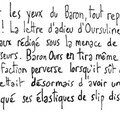 les yeux du Baron, tout rep
! La lettre d'adieu d'Oursuline
aux rédigé sous la menace de
seurs. Baron Ours en tira même
faction perverse lorsqu'il sut
ettait désormais d'avoir un
qué ses élastiques de slip dis